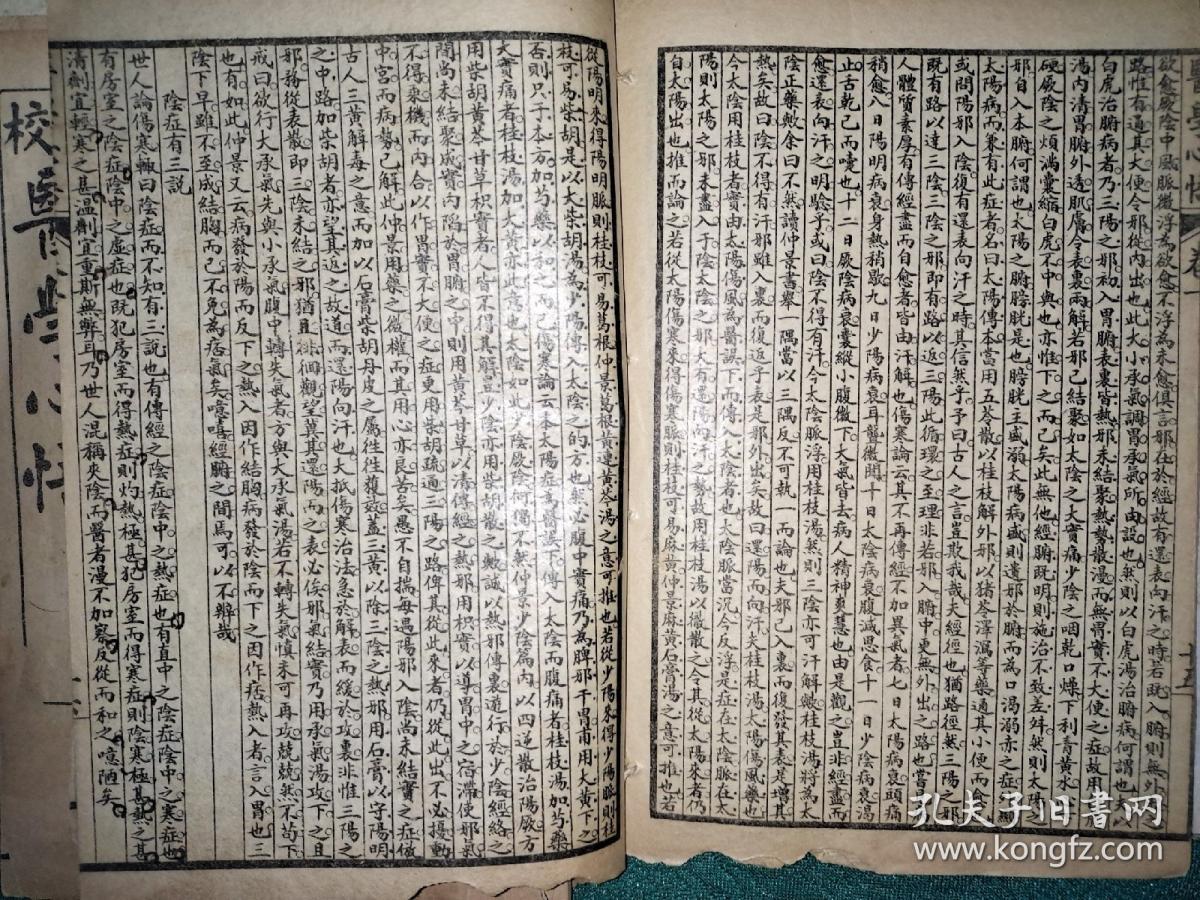 欲愈厥陰中風脈微浮為欲愈不浮為未愈俱言邪在於經故有還表向汗之時若既入腑則無外出之
路惟有通其大便令邪從內出也此大小承氣調胃承氣所由設也然則以白虎湯治腑病何謂也
白虎治腑病者乃三陽之邪初入胃腑表裏皆熱邪未結聚熱勢散漫而無胃實不大便之症故用白虎
湯內清胃腑外透肌膚令表裏兩解若邪已結聚如太陰之大實痛少陰之咽乾口燥下利青黃水心下
硬厥陰之煩滿囊縮白虎不中與也亦惟下之而已矣此無他經腑既明則施治不致差殊然則太陽之
邪自入本腑何謂也太陽之腑膀胱是也膀胱主盛溺太陽病盛則遺邪於腑而為口渴溺赤之症名曰
太陽病而兼有此症者名曰太陽傳本當用五苓散以桂枝解外邪以豬苓澤瀉等藥通其小便而愈
或問陽邪入陰復有還表向汗之時其信然乎予曰古人之言豈欺我哉夫經徑也猶路徑然三陽之邪
既有路以達三陰三陰之邪即有路以返三陽此循環之至理非若邪入腑中更無外出之路也嘗見
人體質素厚有傳經盡而自愈者皆由汗解也傷寒論云其不再傳經不加異氣者七日太陽病衰頭痛
稍愈八日陽明病衰身熱稍歇九日少陽病衰耳聾微聞十日太陰病衰腹減思食十一日少陰病衰渴
止舌乾已而嚏也十二日厥陰病衰囊縱小腹微下大氣皆去病人精神爽慧也由是觀之豈非經盡而
愈還表向汗之明驗乎或曰陰不得有汗今太陰脈浮用桂枝湯然則三陰亦可汗解歟桂枝湯將為太
陰正藥歟余曰不然讀仲景書舉一隅當以三隅反不可執一而論也夫邪已入裏而復發其表是增其
熱矣故曰陰不得有汗邪雖入裏而復返乎表是邪外出矣故曰還陽而向汗夫桂枝湯太陽傷風藥也
今太陰用桂枝者實由太陽傷風為醫誤下而傳入太陰者也太陰脈當沉今反浮是症在太陰脈在太
陽則太陽之邪未盡入于陰太陰之邪大有還陽向汗之勢故用桂枝湯以微散之令其從太陽來者仍
自太陽出也推而論之若從太陽傷寒來得傷寒脈則桂枝可易麻黃仲景麻黃石膏湯之意可推也若
從陽明來得陽明脈則桂枝可易葛根仲景葛根黃連黃芩湯之意可推也若從少陽來得少陽脈則桂
枝可易柴胡是以大柴胡湯為少陽傳入太陰之的方也然必腹中實痛乃為脾邪干胃甫用大黃下之
否則只于本方加芍藥以和之而已傷寒論云本太陽症為醫誤下傳入太陰而腹痛者桂枝湯加芍藥
大實痛者桂枝湯加大黃亦此意也太陰如此少陰厥陰何獨不然仲景少陰篇內以四逆散治陽厥方
用柴胡黃芩甘草枳實者人皆不得其解蓋少陰亦用柴胡散之歟誠以熱邪傳裏遊行於少陰經絡之
間尚未結聚成實內陷於胃腑之中則用黃芩甘草以清傳經之熱邪用枳實以導胃中之宿滯使邪氣
不得乘機而內合以作胃實不大便之症更用柴胡疏通三陽之路俾其從此來者仍從此出不必擾動
中宮而病勢已解此仲景用藥之微權而其用心亦良苦矣愚不自揣每遇陽邪入陰尚未結實之症倣
古人三黃解毒之意而加以石膏柴胡丹皮之屬往往獲效蓋三黃以除三陰之熱邪用石膏以字陽明
之中路加柴胡者亦望其返之故道而還陽向汗也大抵傷寒治法急於解表而緩於攻裏非惟三陽之
邪務從表散即三陰未結之邪猶且徘徊觀望冀其還陽而之表必俟邪氣結實乃用承氣湯攻下之且
戒曰欲行大承氣先與小承氣腹中轉失氣者方與大承氣湯若不轉失氣慎未可再攻兢兢然不苟下
也有如此仲景又云病發於陽而反下之熱入因作結胸病發於陰而下之因作痞熱入者言入胃也三
陰下早雖不至成結胸而已不免為痞氣矣噫嘻經腑之間焉可以不辨哉
陰症有三說
世人論傷寒輒曰陰症而不知有三說也有傳經之陰症陰中之熱症也有直中之陰症陰中之寒症也
有房室之陰症陰中之虛症也既犯房室而得熱症則灼熱極甚犯房室而得寒症則陰寒極甚熱之甚
清劑宜輕寒之甚溫劑宜重斯無弊耳乃世人混稱夾陰而醫者漫不加察反從而和之噫陋矣
校醫學心悟
孔夫子旧書网
www.kongfz.com